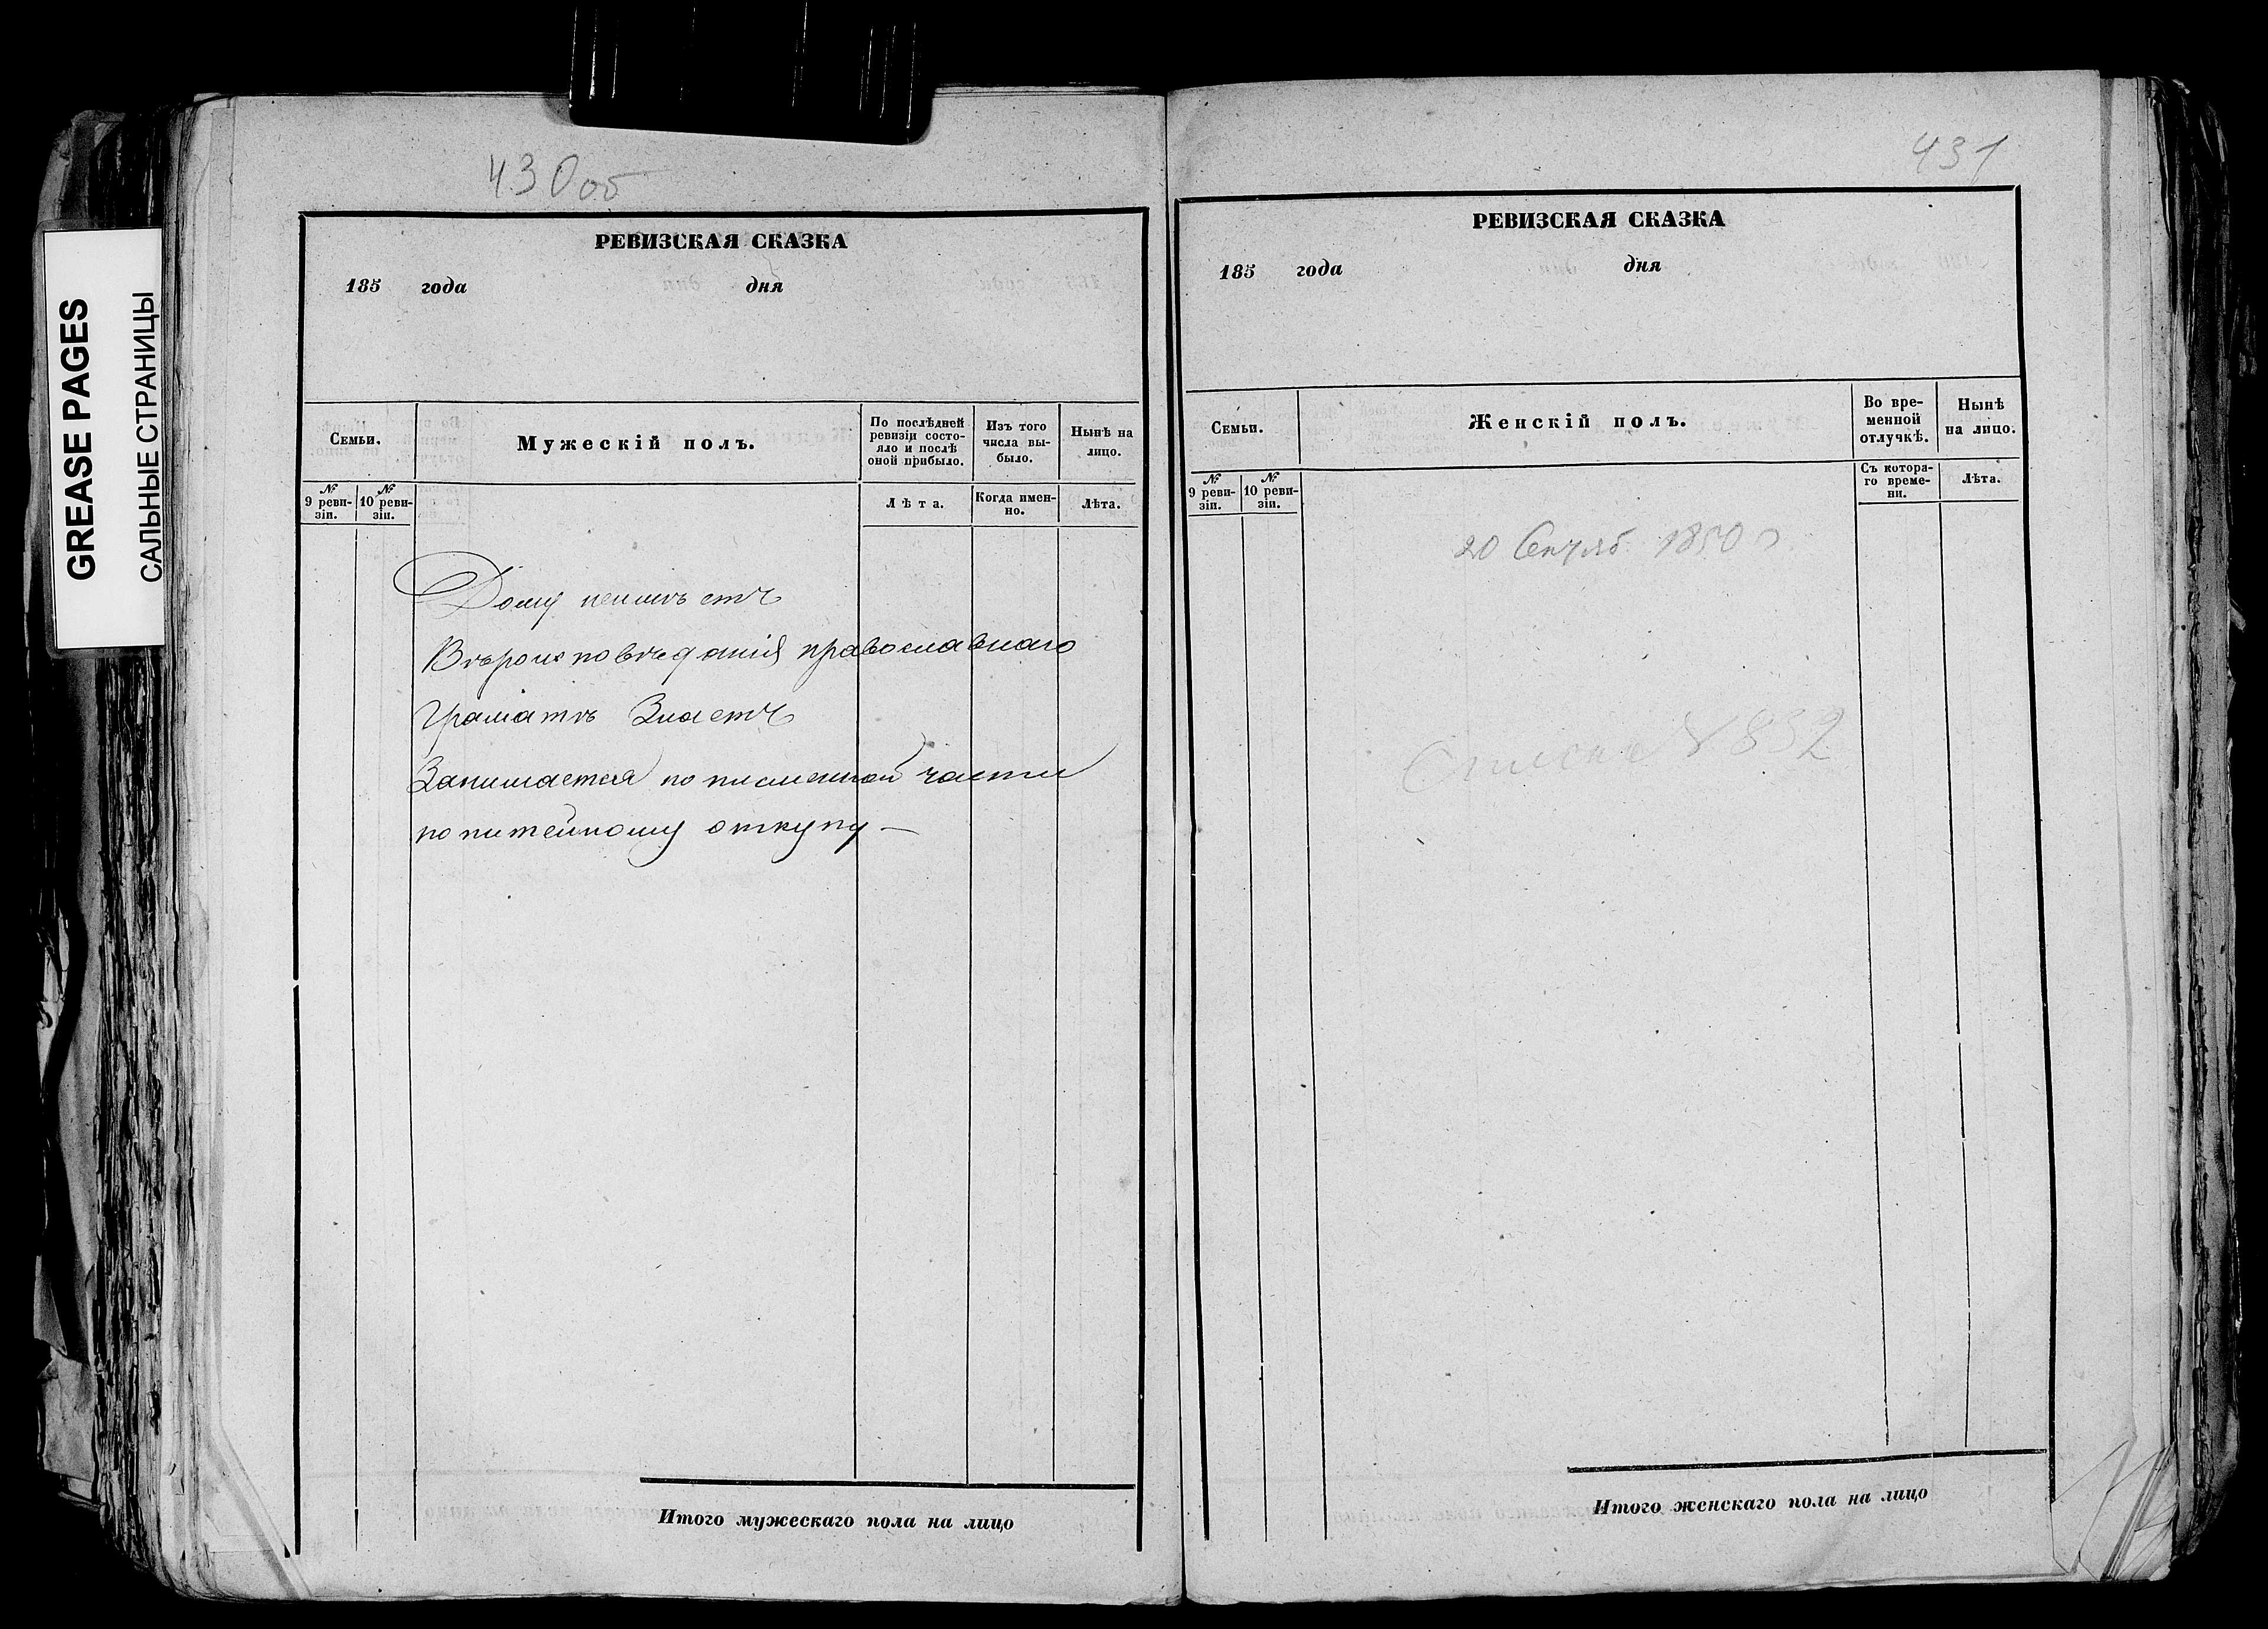 GREASE PAGES
САЛЬНЫЕ СТРАНИЦЫ
430об
РЕВИЗСКАЯ СКАЗКА
185 года дня
Семьи.
Мужескій полъ.
По послѣдней ревизіи состо-
яло и послѣ
оной прибыло.
Изъ того
числа вы-
было.
Нынѣ на
лицо.
№
9 реви-
зіи.
№
10 реви-
зіи.
Лѣта.
Когда имен-
но.
Лѣта.
Дому неимѣетъ
Вѣроисповѣданія православнаго
Граматѣ Знаетъ
Занимается по писменной части
по питейному откупу —
Итого мужескаго пола на лицо
431
РЕВИЗСКАЯ СКАЗКА
185 года дня
Семьи.
Женскій полъ.
Во вре-
менной
отлучкѣ.
Нынѣ
на лицо.
№
9 реви-
зіи.
№
10 реви-
зіи.
Съ котора-
го време-
ни.
Лѣта.
20 Сентяб 1850
Итого женскаго пола на лицо